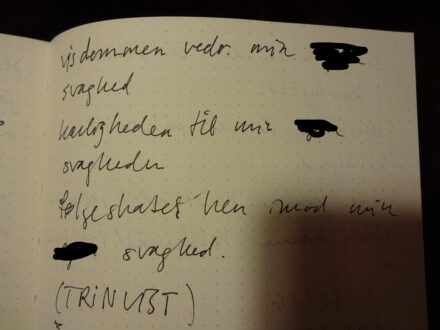 visdommen vedr. min
svaghed
kærligheden til min
svagheden
følgeskabet hen imod min
svaghed.